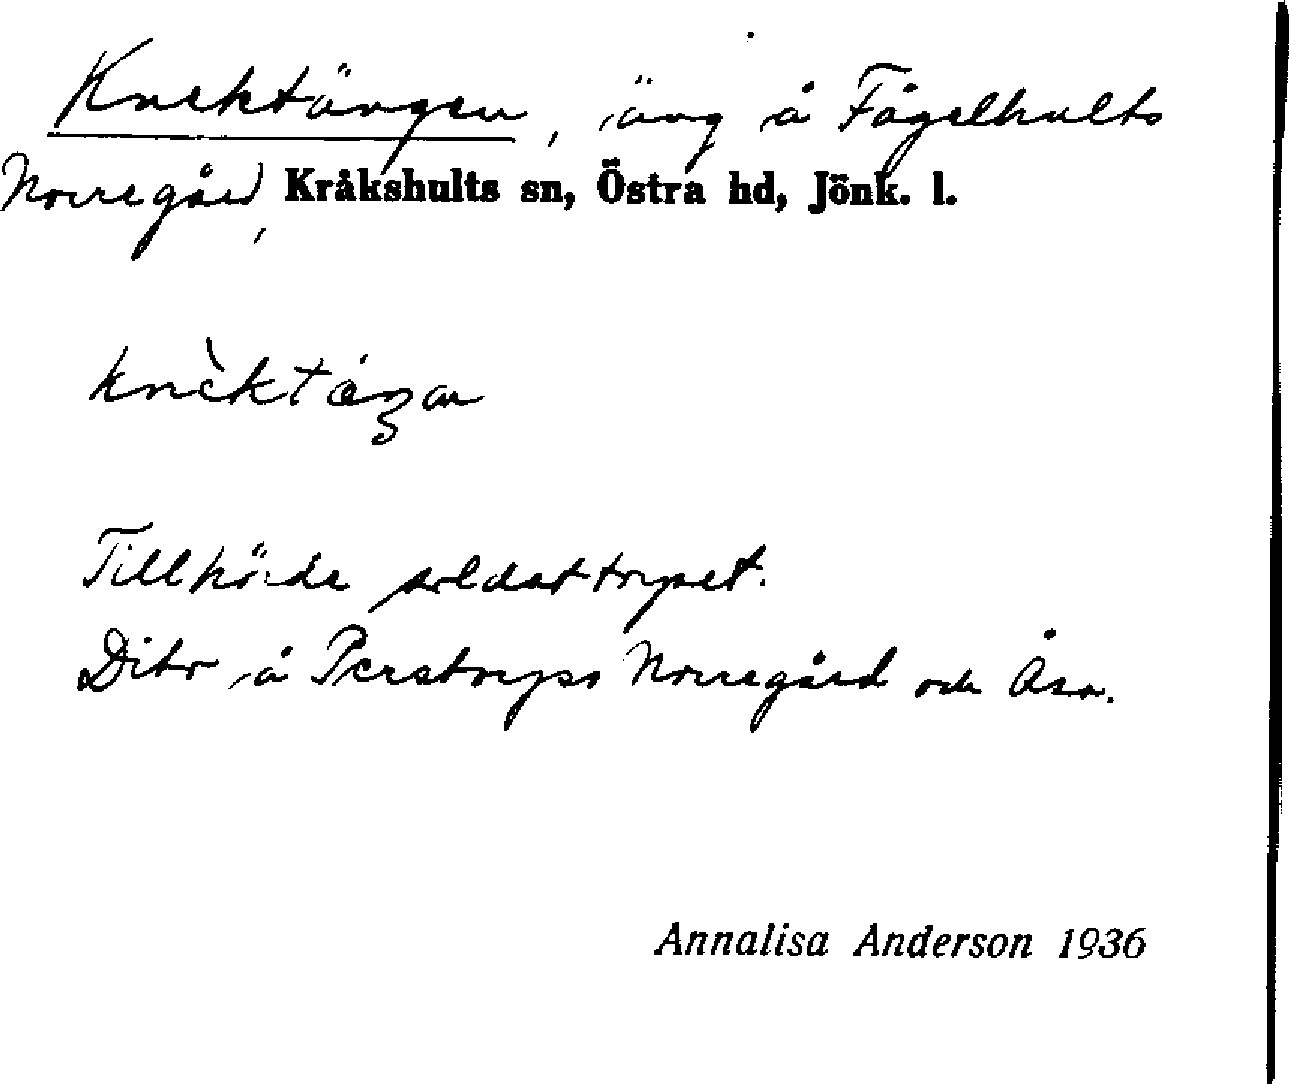 Knektängen, äng å Fågelhults
Norregård, Kråkshults sn, Östra hd, Jönk. l.
knèktæ´ŋan
Tillhörde soldattorpet.
Dito å Perstorps Norregård och Åsa.
Annalisa Anderson 1936